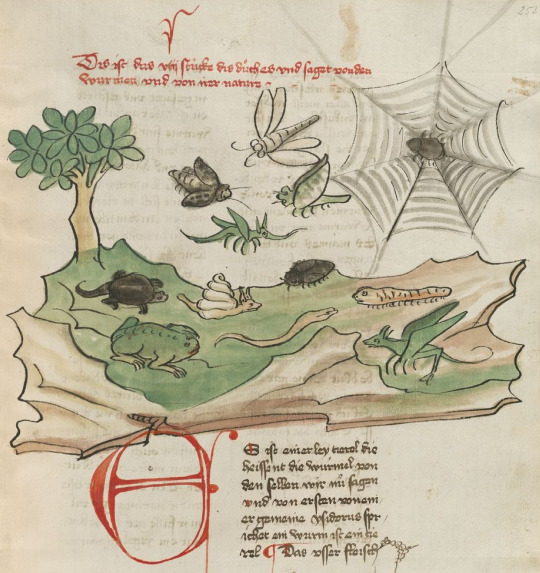 252
Dis ist das viij stücke dis bůches vnd saget von den
würmen vnd von irer nature
ES ist einerley tierel die
heissent die würmel von
den sellen wir nů sagen
vnd von ersten von ein
er gemeine ysidorus spr
ichet ein wurm ist ein tie
rel Das vsser fleisch